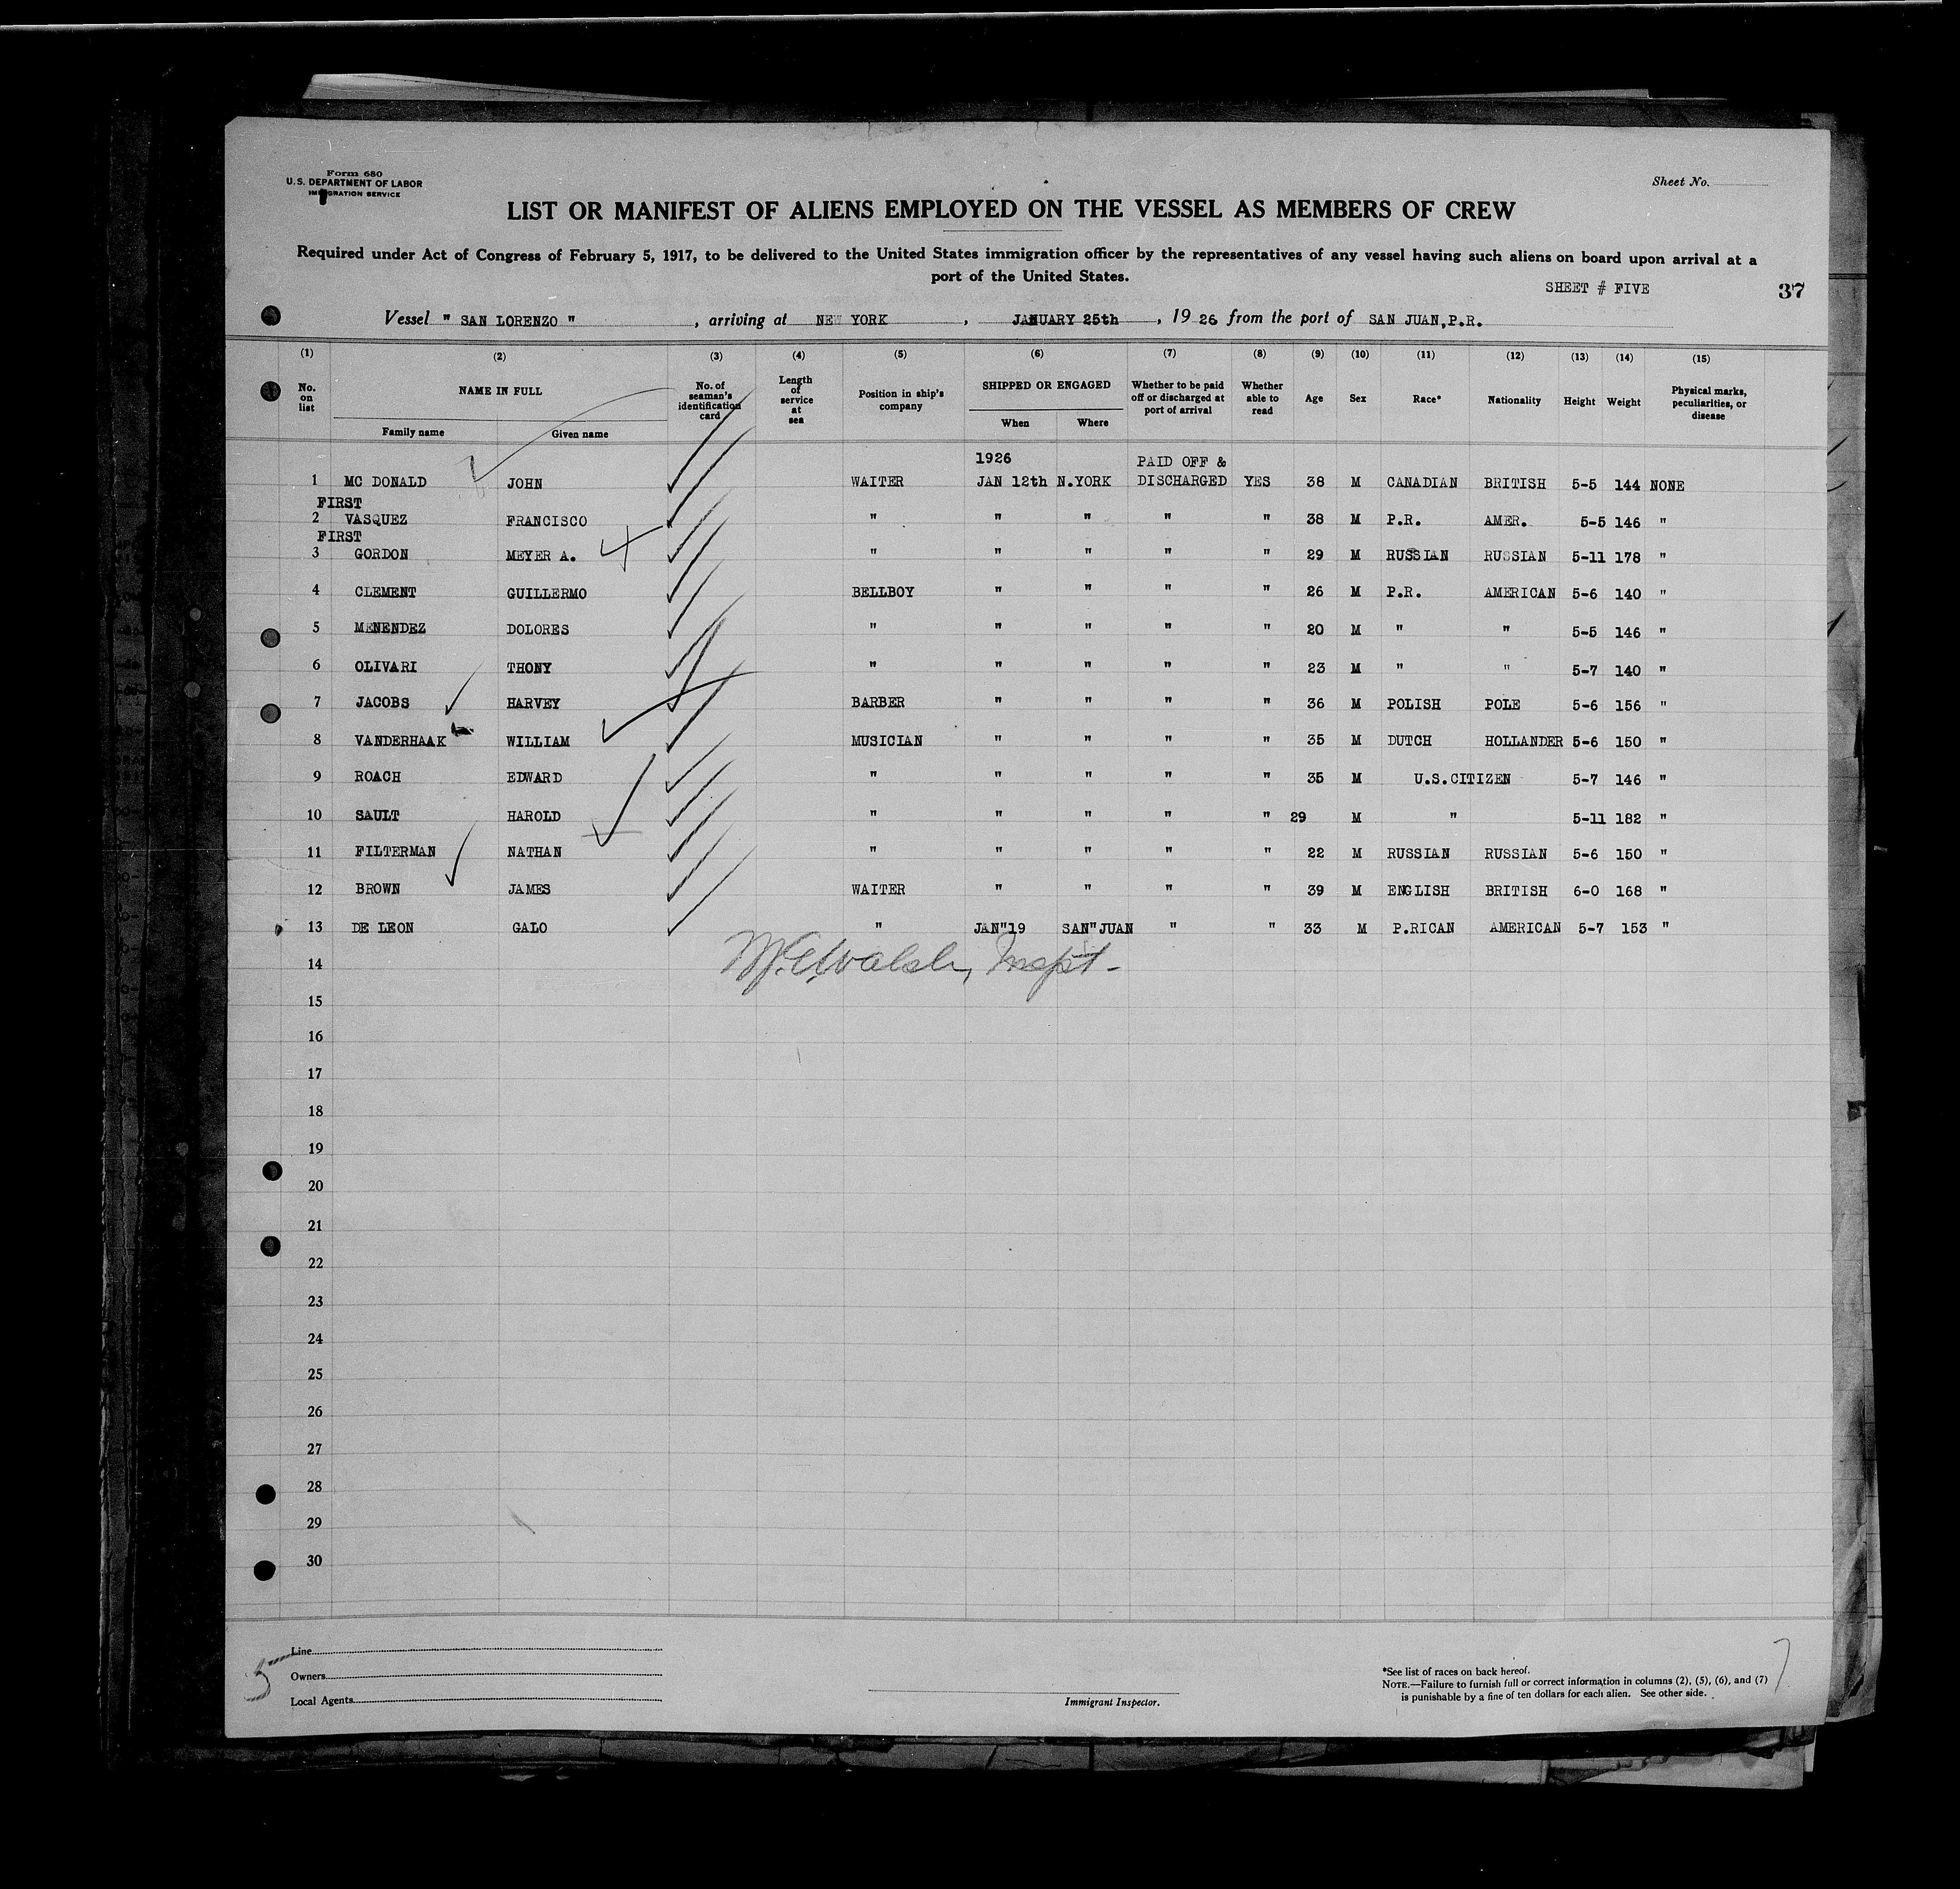 Form 680
U. S. DEPARTMENT OF LABOR
IMMIGRATION SERVICE
Sheet No.
LIST OR MANIFEST OF ALIENS EMPLOYED ON THE VESSEL AS MEMBERS OF CREW
Required under Act of Congress of February 5, 1917, to be delivered to the United States immigration officer by the representatives of any vessel having such aliens on board upon arrival at a
port of the United States.
SHEET # FIVE
37
Vessel " SAN LORENZO " , arriving at NEW YORK , JANUARY 25th , 19 26 from the port of SAN JUAN,P.R.
(1) (2) (3) (4) (5) (6) (7) (8) (9) (10) (11) (12) (13) (14) (15)
No. on list NAME IN FULL Family name Given name No. of seaman's identification card Length of service at sea Position in ship's company SHIPPED OR ENGAGED When Where Whether to be paid off or discharged at port of arrival Whether able to read Age Sex Race* Nationality Height Weight Physical marks, peculiarities, or disease
1926 PAID OFF &
1 MC DONALD JOHN WAITER JAN 12th N.YORK DISCHARGED YES 38 M CANADIAN BRITISH 5-5 144 NONE
FIRST
2 VASQUEZ FRANCISCO " " " " " 38 M P.R. AMER. 5-5 146 "
FIRST
3 GORDON MEYER A. " " " " " 29 M RUSSIAN RUSSIAN 5-11 178 "
4 CLEMENT GUILLERMO BELLBOY " " " " 26 M P.R. AMERICAN 5-6 140 "
5 MENENDEZ DOLORES " " " " " 20 M " " 5-5 146 "
6 OLIVARI THONY " " " " " 23 M " " 5-7 140 "
7 JACOBS HARVEY BARBER " " " " 36 M POLISH POLE 5-6 156 "
8 VANDERHAAK WILLIAM MUSICIAN " " " " 35 M DUTCH HOLLANDER 5-6 150 "
9 ROACH EDWARD " " " " " 35 M U.S.CITIZEN 5-7 146 "
10 SAULT HAROLD " " " " " 29 M " 5-11 182 "
11 FILTERMAN NATHAN " " " " " 22 M RUSSIAN RUSSIAN 5-6 150 "
12 BROWN JAMES WAITER " " " " 39 M ENGLISH BRITISH 6-0 168 "
13 DE LEON GALO " JAN"19 SAN"JUAN " " 33 M P.RICAN AMERICAN 5-7 153 "
14 Walsh, Inspt.
15
16
17
18
19
20
21
22
23
24
25
26
27
28
29
30
5
Line
Owners
Local Agents
Immigrant Inspector.
*See list of races on back hereof.
NOTE.—Failure to furnish full or correct information in columns (2), (5), (6), and (7)
is punishable by a fine of ten dollars for each alien. See other side.
7